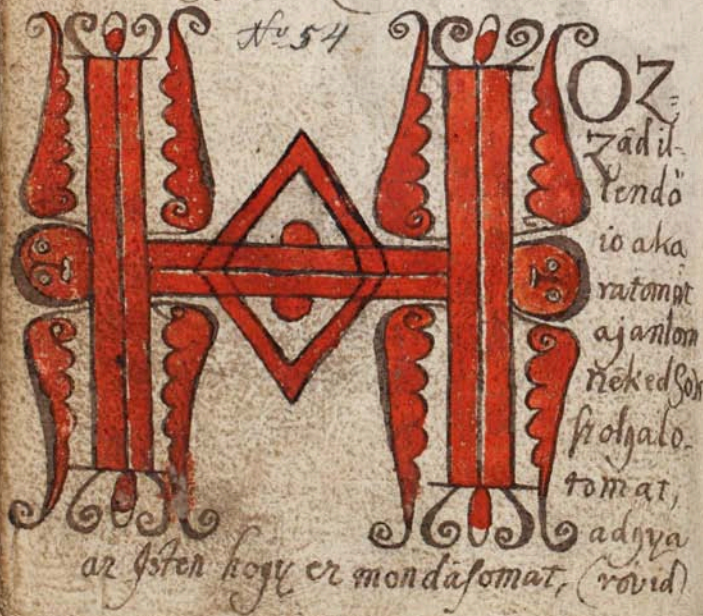 No 54
HOZ-
zád il-
lendö
io aka
ratomat
ajanlom
neked sok
szolgalo-
tomat,
adgya
az Isten hogy ez mondásomat, (rövid)